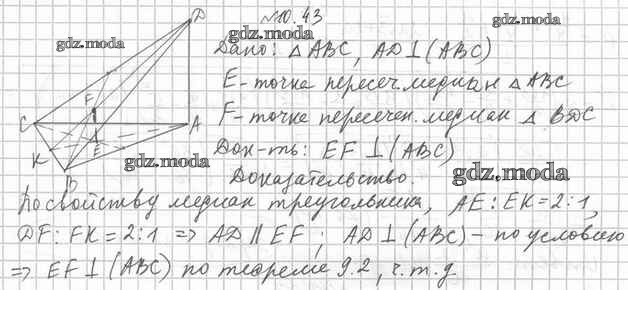 №10.43
D
gdz.moda
gdz.moda
Дано: △ABC, AD⊥(ABC)
E-точка пересеч. медиан △ABC
F
F-точка пересечен. медиан △ BDC
C
A
Док-ть: EF⊥(ABC)
K
E
gdz.moda
B
gdz.moda
Доказательство.
По свойству медиан треугольника, AE:EK=2:1,
DF:FK=2:1 ⇒ AD∥EF; AD⊥(ABC)-по условию
⇒ EF⊥(ABC) по теореме 9.2, ч.т.д.